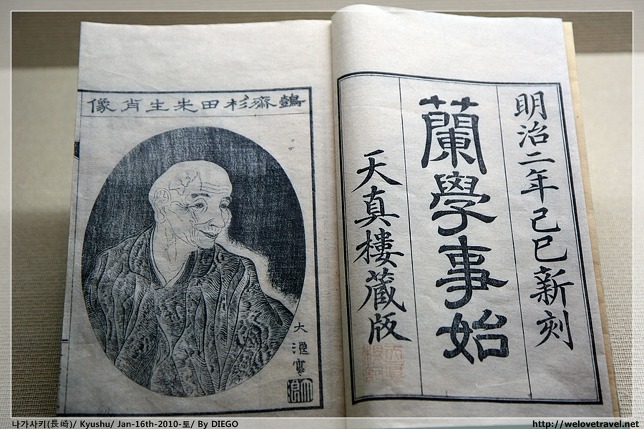 明治二年己巳新刻
蘭學事始
天真樓藏版
鷧齋杉田先生肖像
나가사키(長崎)/ Kyushu/ Jan-16th-2010-토/ By DIEGO
http://welovetravel.net